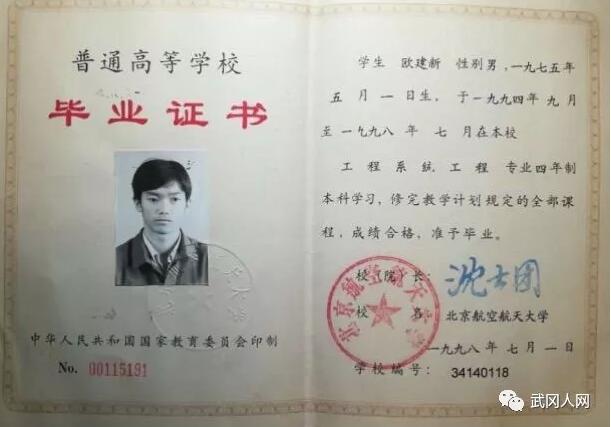 普通高等学校
毕业证书
中华人民共和国国家教育委员会印制
No. 00115191
学生 欧建新 性别男,一九七五年
五月一日生,于一九九四年九月
至一九九八年七月在本校
工程系统工程 专业四年制
本科学习,修完教学计划规定的全部课
程,成绩合格,准予毕业。
校(院)长: 沈士团
校名 北京航空航天大学
北京航空航天大学
一九九八年七月一日
学校编号: 34140118
武冈人网